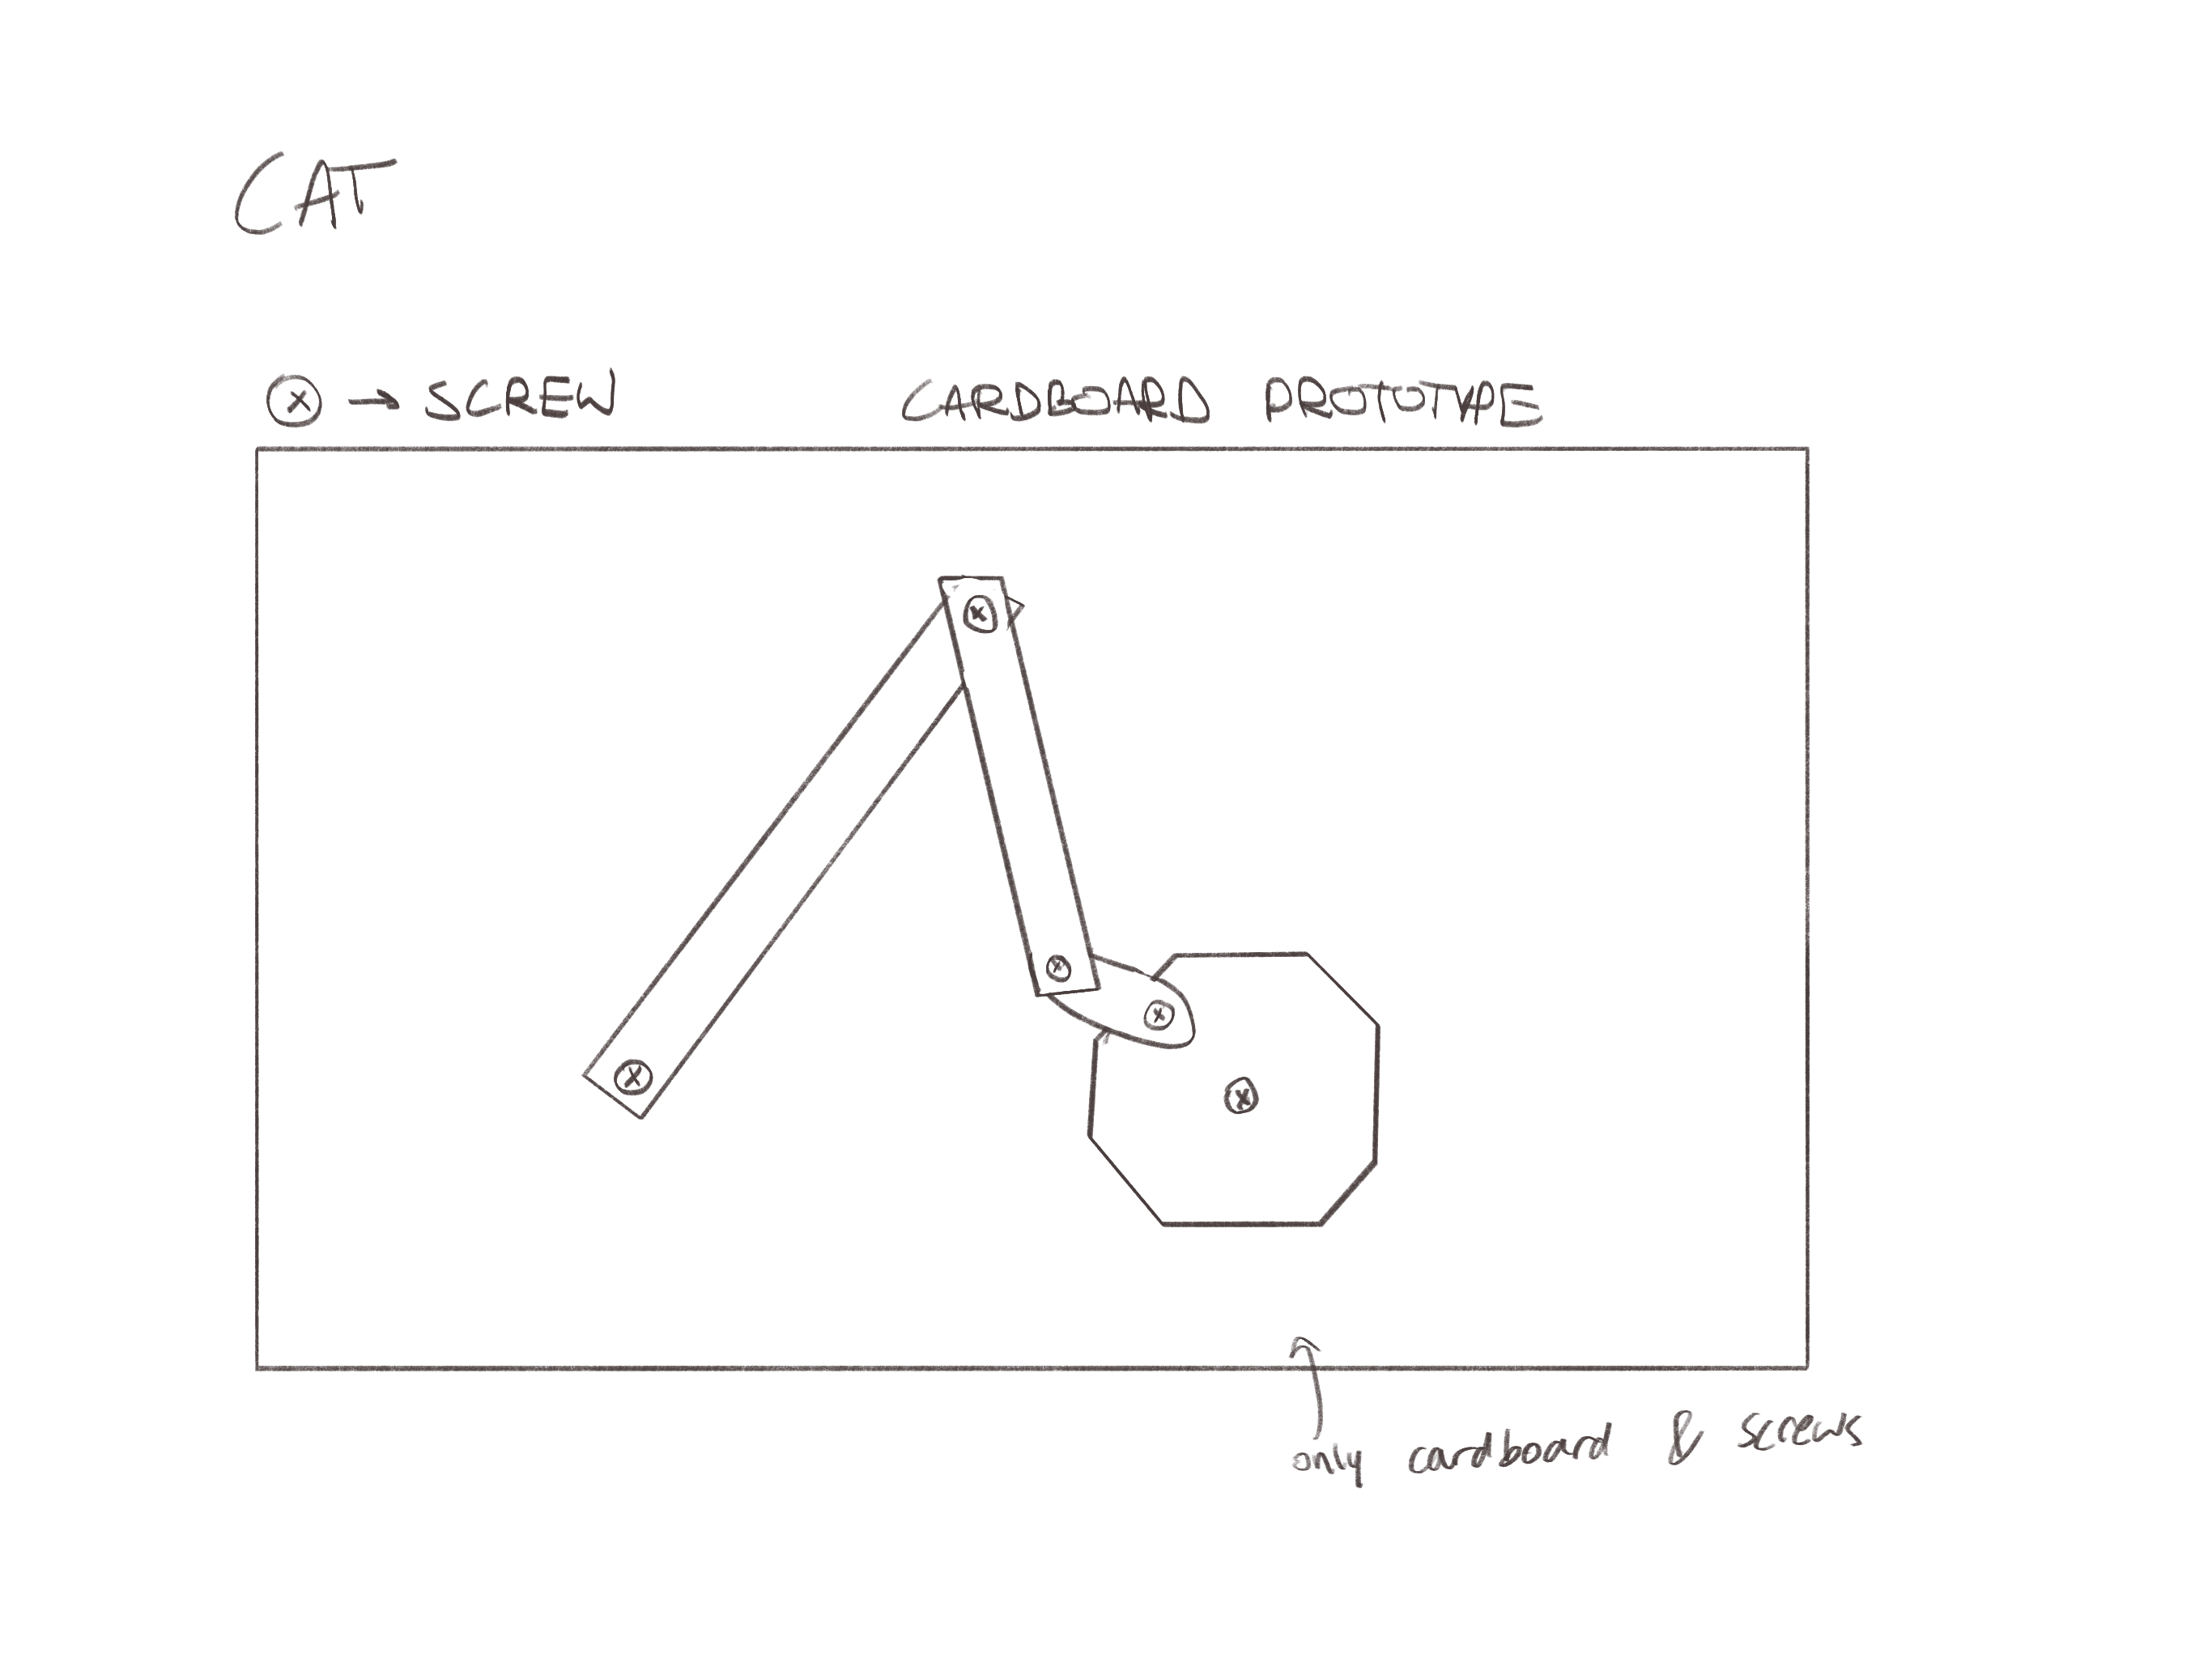 CAT
ⓧ → SCREW
CARDBOARD PROTOTYPE
only cardboard & screws